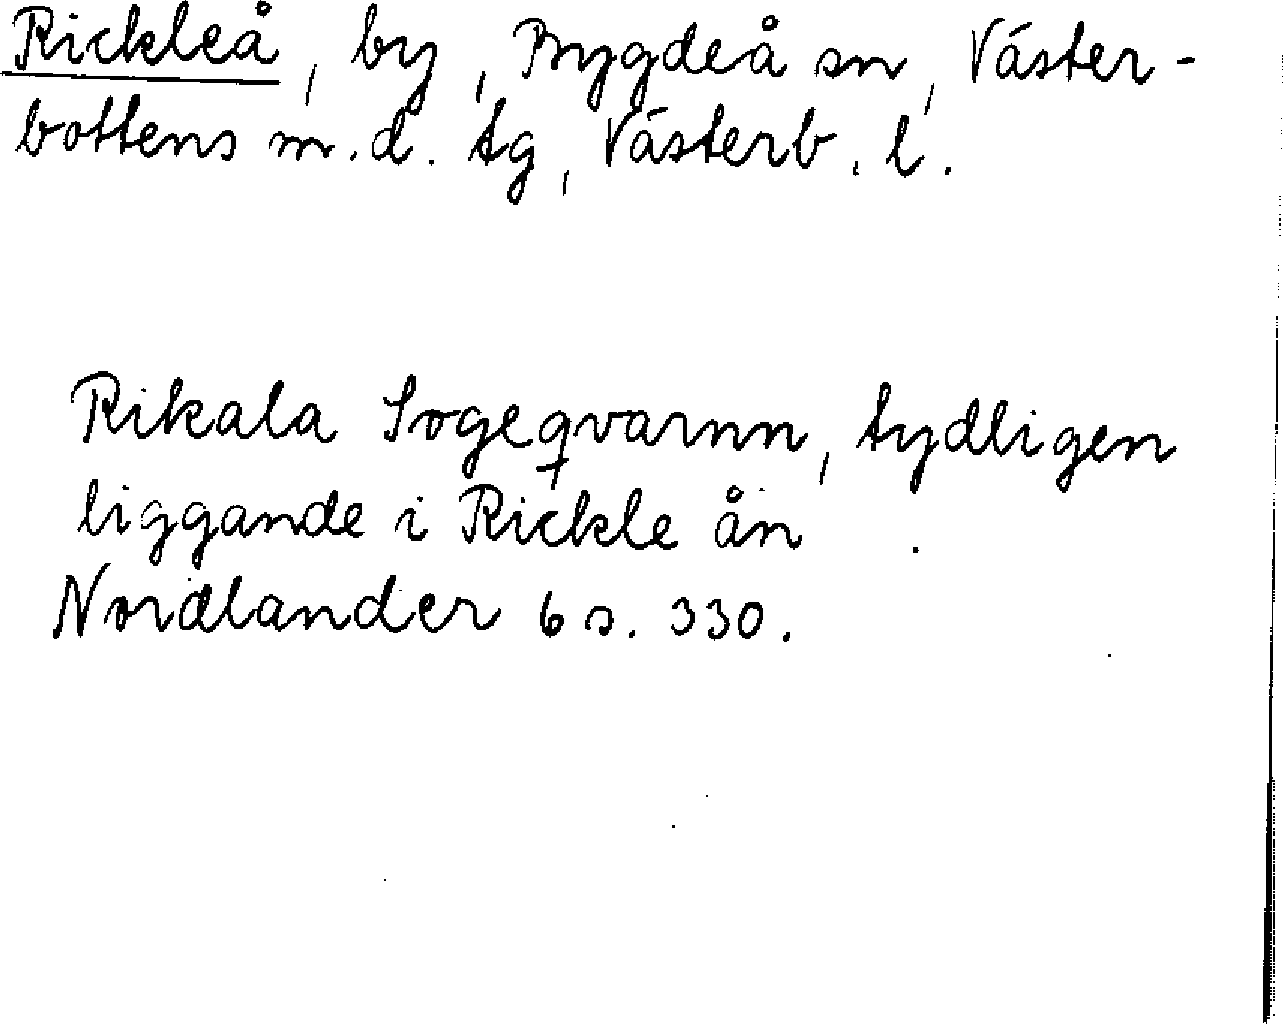 Rickleå, by, Bygdeå sn, Väster-
bottens m.d. tg, Västerb. l.
Rikala Sogeqvarnn, tydligen
liggande i Rickle ån.
Nordlander 6 s. 330.